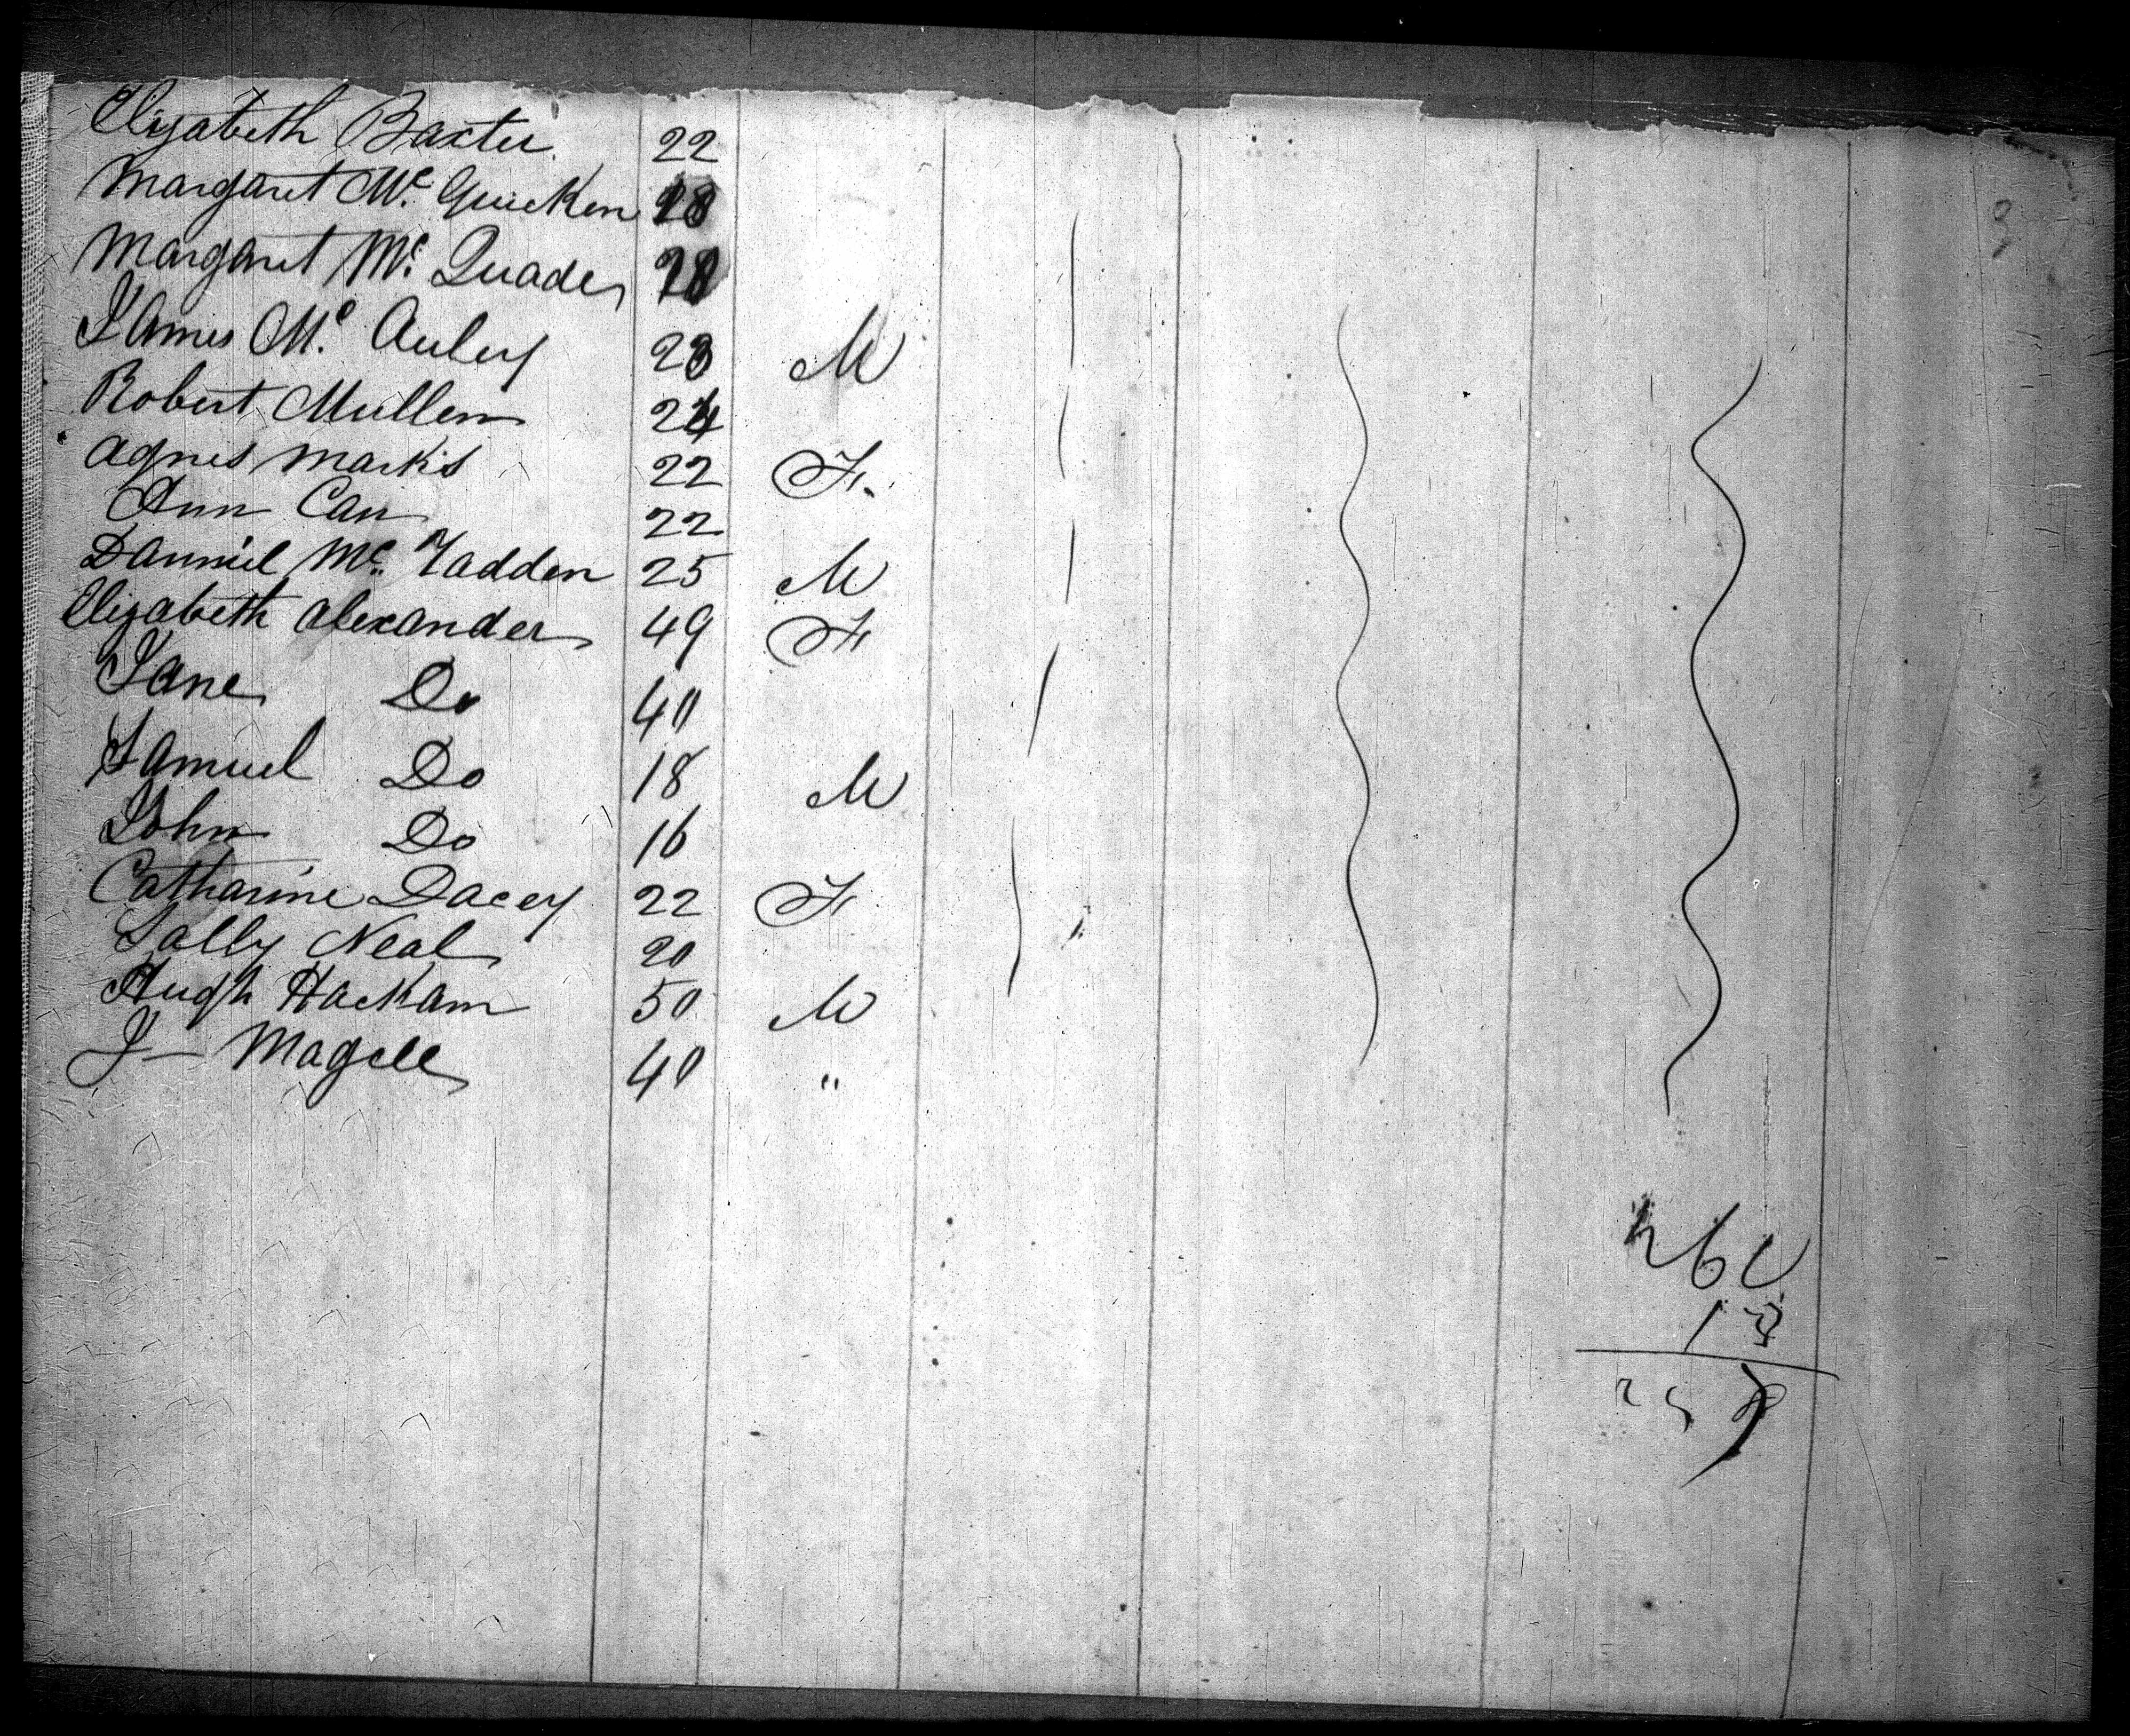 Elizabeth Baxter 22
Margaret Mc. Quicken 18
Margaret Mc. Quade
James Mc. Auley 23 M
Robert Mullen 24
Agnes Marks 22 F.
Ann Carr 22
Danniel Mc. Fadden 25 M
Elizabeth Alexander 49 F
Jane Do 40
Samuel Do 18 M
John Do 16
Catharine Dacey 22 F
Sally Neal 20
Hugh Hackam 50 M
J— Magill 40 "